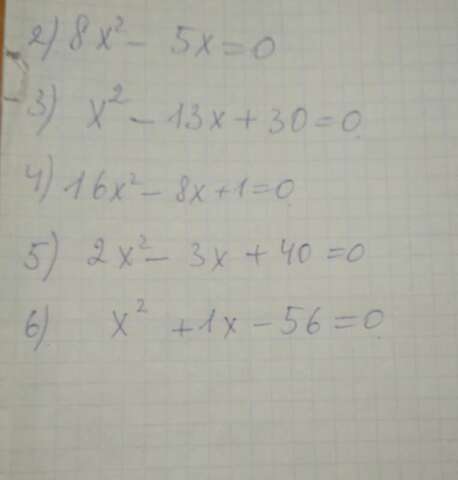 2) 8x² - 5x = 0
3) x² - 13x + 30 = 0
4) 16x² - 8x + 1 = 0
5) 2x² - 3x + 40 = 0
6) x² + 1x - 56 = 0